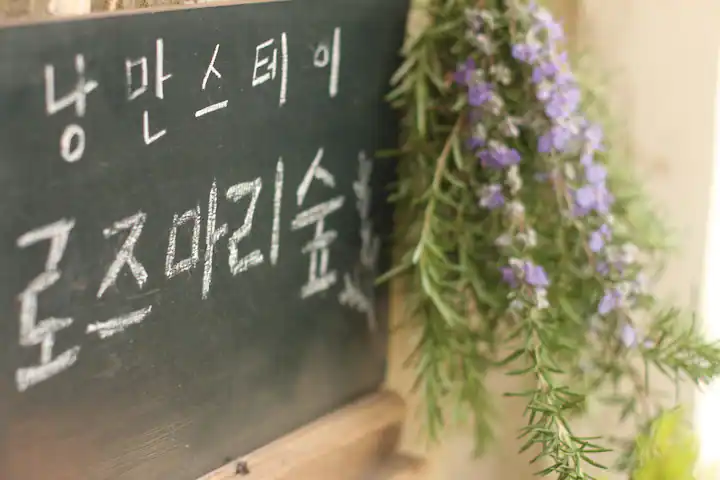 낭만스테이
로즈마리숲